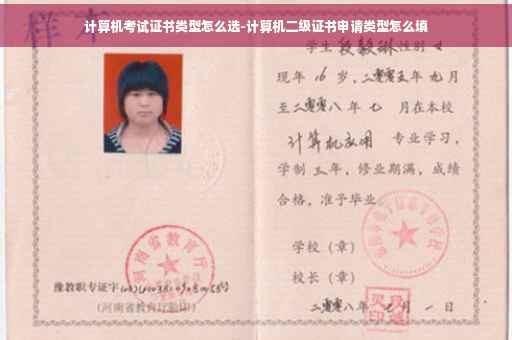 计算机考试证书类型怎么选-计算机二级证书申请类型怎么填
样本
学生段毅琳性别女
现年16岁，二零零五年九月
至二零零八年七月在本校
计算机应用 专业学习，
学制三年，修业期满，成绩
合格，准予毕业
学校（章）
校长（章）
豫教职专证字
(河南省教育厅验印)
二零零八年七月一日
河南省教育厅